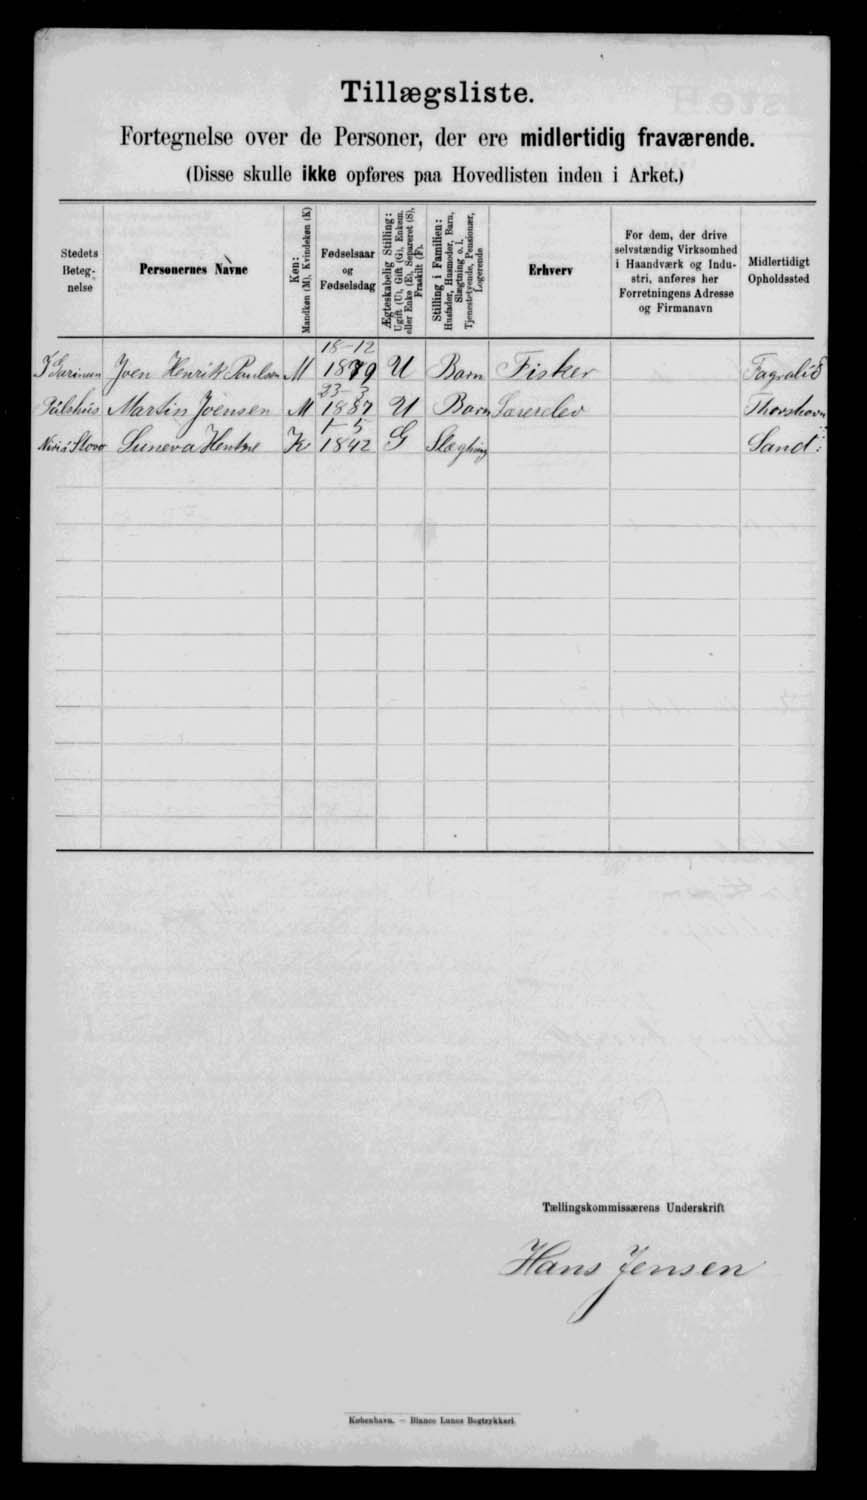 Tillægsliste.
Fortegnelse over de Personer, der ere midlertidig fraværende.
(Disse skulle ikke opføres paa Hovedlisten inden i Arket.)
Stedets Beteg- nelse
Personernes Navne
Køn: Mandkøn (M), Kvindekøn (K)
Fødselsaar og Fødselsdag
Ægteskabelig Stilling: Ugift (U), Gift (G), Enkem. eller Enke (E), Separeret (S), Fraskilt (F).
Stilling i Familien: Husfader, Husmoder, Barn, Slægtning o. l. Tjenestetyende, Pensionær, Logerende
Erhverv
For dem, der drive selvstændig Virksomhed i Haandværk og Indu- stri, anføres her Forretningens Adresse og Firmanavn
Midlertidigt Opholdssted
Joen Henrik Poulsen M 18-12 1879 U Barn Fisker
Martin Joensen M 23-3 1887 U Barn Thorshavn
Suneva K 1-5 1842 G Slægtning Sand
Tællingskommissærens Underskrift
Hans Jensen
København. — Bianco Lunos Bogtrykkeri.